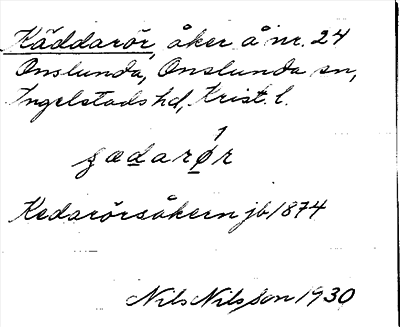 Käddarör, åker å nr. 24
Onslunda, Onslunda sn,
Ingelstads hd, Krist. l.
ɕædarø̀r
Kedarörsåkern jb 1874
Nils Nilsson 1930